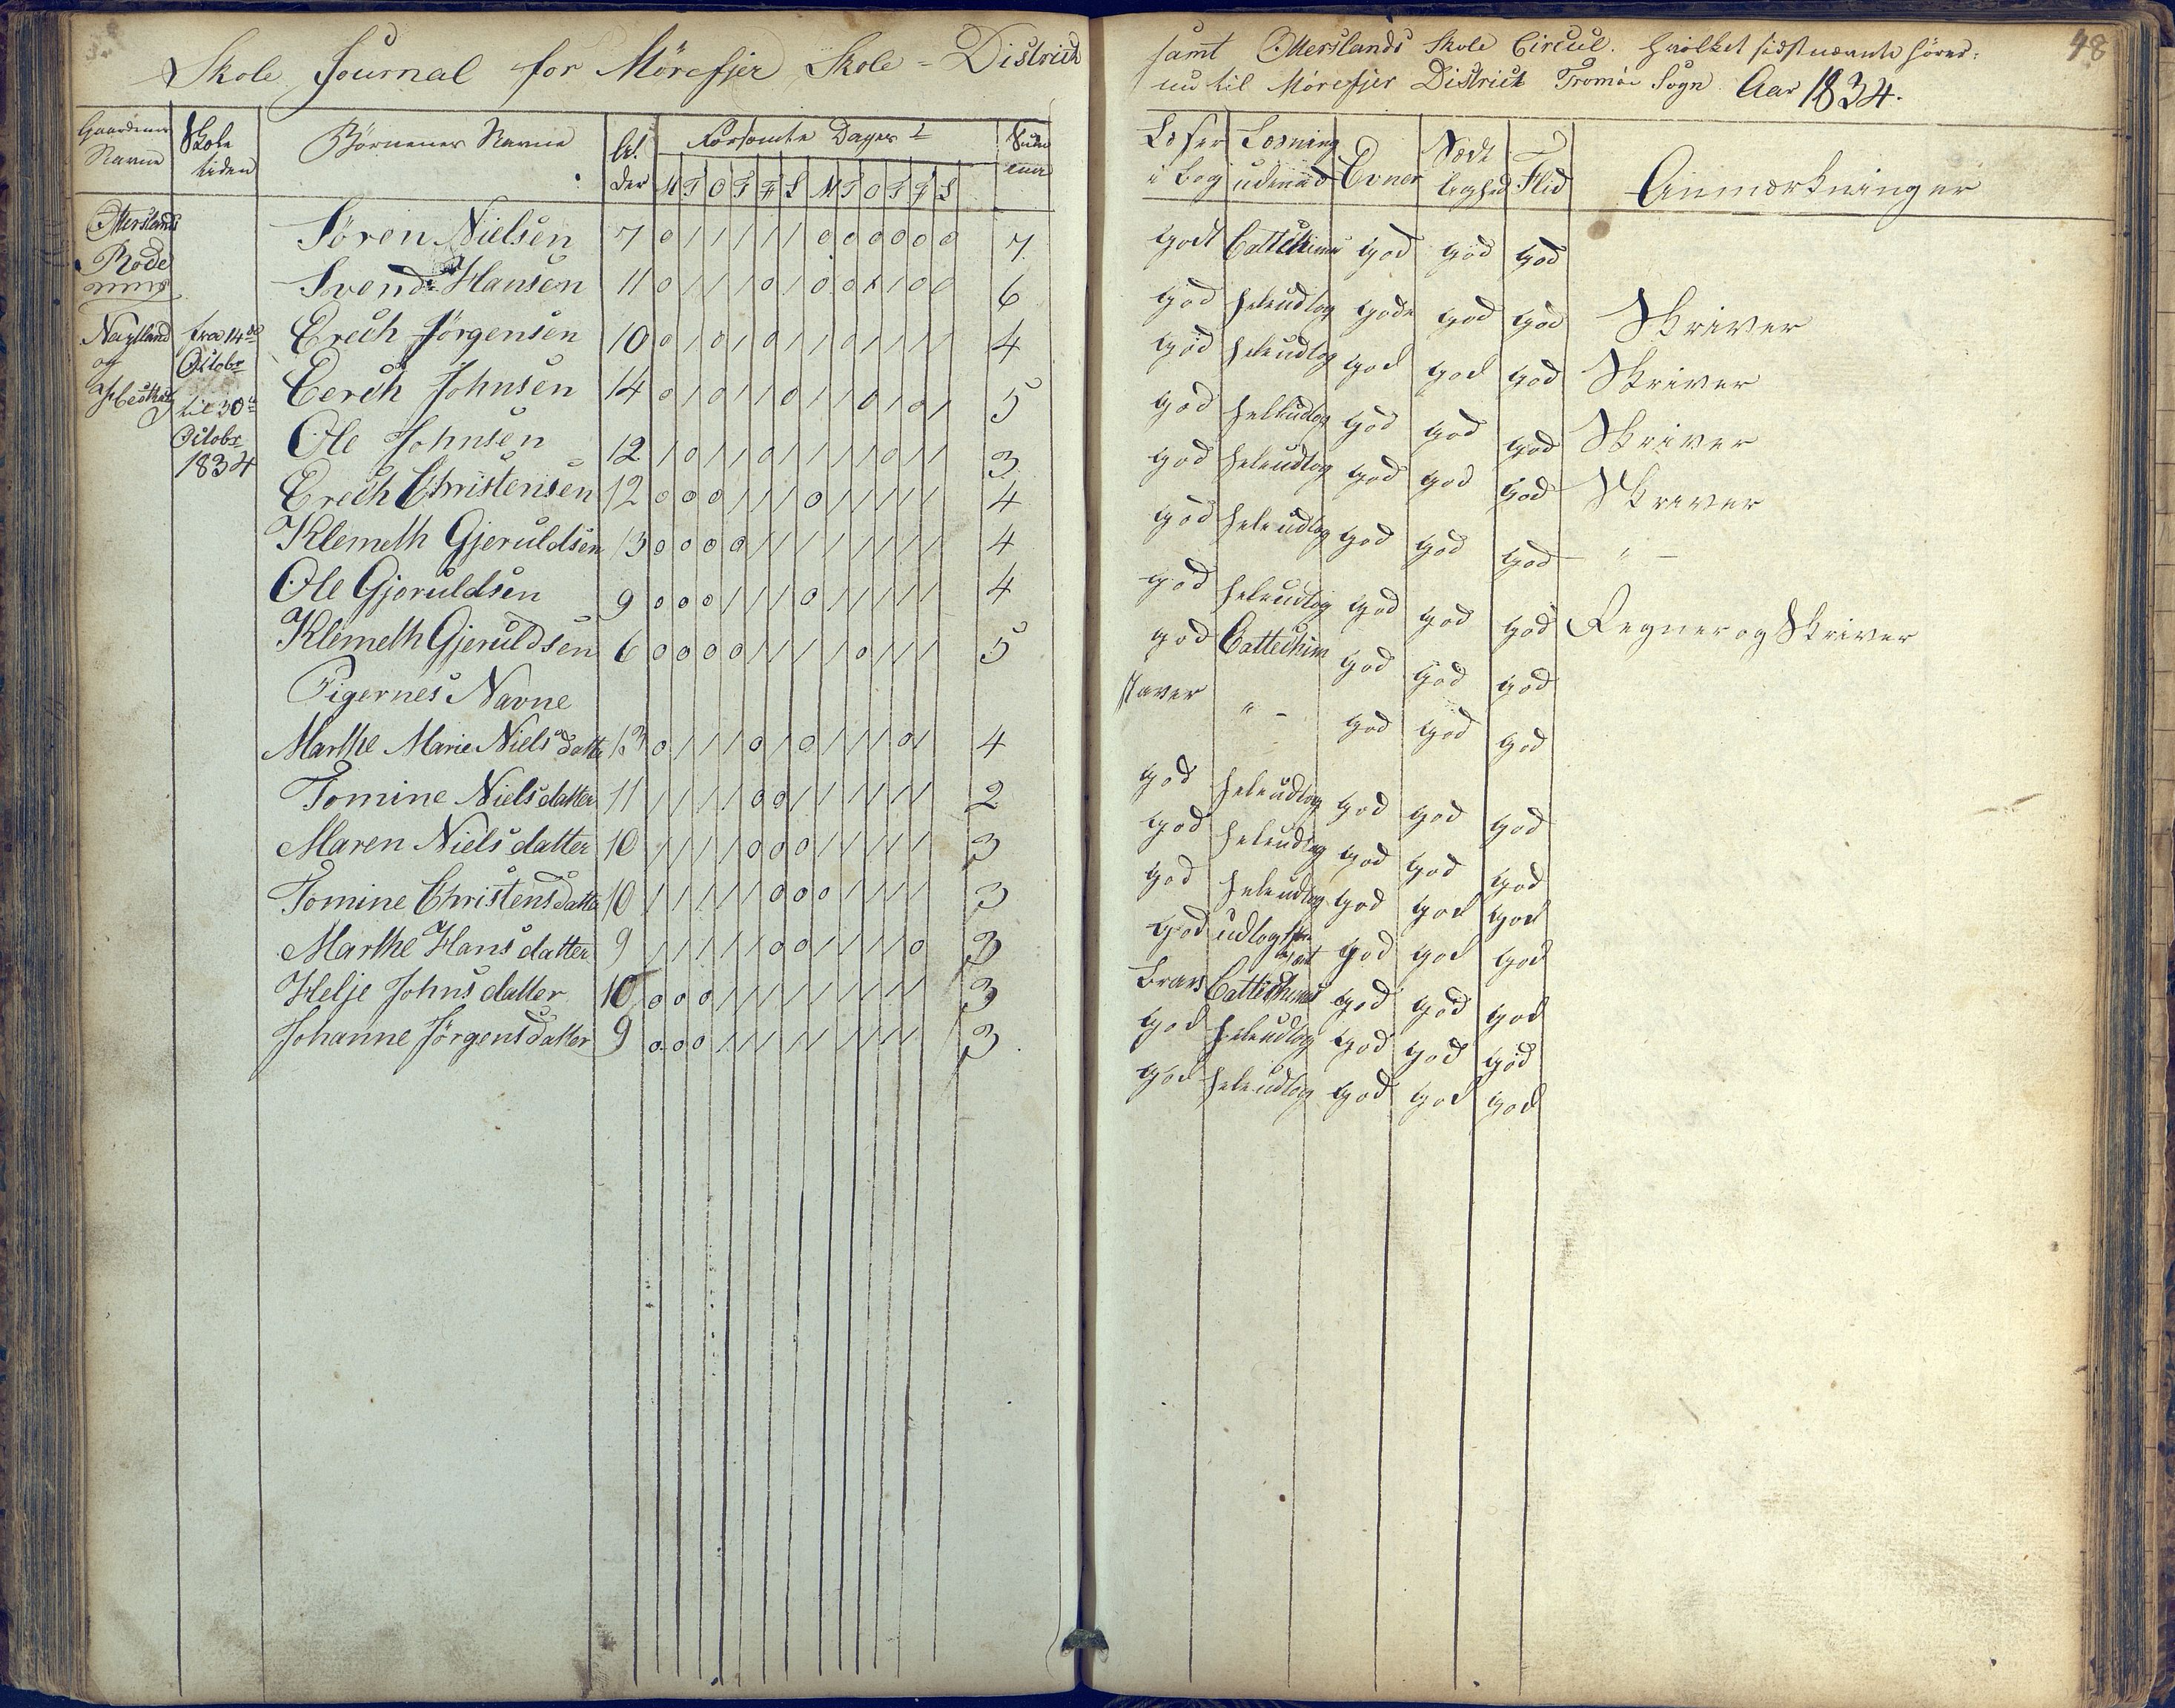 Skole Journal for Mörefjer Skole-District
Gaardenes Navne Skole tiden Börnenes Navne Al. der Forsömte Dager Sum ma
M T O T F L M T O T F L
Otterslands Rode
Søren Nielsen 7 0 / / / / / 0 0 0 0 0 0 7
Svend Hansen 11 0 / / / 0 / 0 0 / 0 0 6
Nagelland og fra 14de Octobr til 30te Octobr 1834
Erech Jörgensen 10 0 / 0 / 0 / / 0 / / / / 4
Eerch Johnsen 14 0 / 0 / / 0 / / 0 / 0 / 5
Ole Johnsen 12 / 0 / / 0 / / / / 0 / / 3
Erech Christensen 12 0 0 0 / / / 0 / / / / / 4
Klemeth Gjeruldsen 13 0 0 0 0 / / / / / / / / 4
Ole Gjeruldsen 9 0 0 0 / / / 0 / / / / / 4
Klemeth Gjeruldsen 6 0 0 0 0 / / / / 0 / / / 5
Pigernes Navne
Marthe Marie Nielsdatter 13 0 / / / 0 / 0 / / / 0 / 4
Tomine Nielsdatter 11 / / / / 0 0 / / / / / / 2
Maren Nielsdatter 10 / / / / 0 0 0 / / / / / 3
Tomine Christensdatter 10 / / / / / 0 0 0 / / / / 3
Marthe Hansdatter 9 / / / / / 0 0 / / / / 0 3
Helje Johnsdatter 10 0 0 0 / / / / / / / / / 3
Johanne Jörgensdatter 9 0 0 0 / / / / / / / / / 3
48
samt Otterslands Skole Circul. hvilket sidstnævnte hører
nu til Mörefjer District Tromöe Sogn Aar 1834.
Læser i bog Læsning udenad Evner Sæde lighed Flid Anmærkninger
godt Cattechismus god god god
god heleudlog gode god god Skriver
god heleudlog god god god Skriver
god heleudlog god god god Skriver
god heleudlog god god god Skriver
god heleudlog god god god — " —
god heleudlog god god god Regner og Skriver
god Cattechism god god god
staver " - god god god
god heleudlog god god god
god heleudlog god god god
god heleudlog god god god
god udlog god god god
brav Cattechismus god god god
god heleudlog god god god
god heleudlog god god god